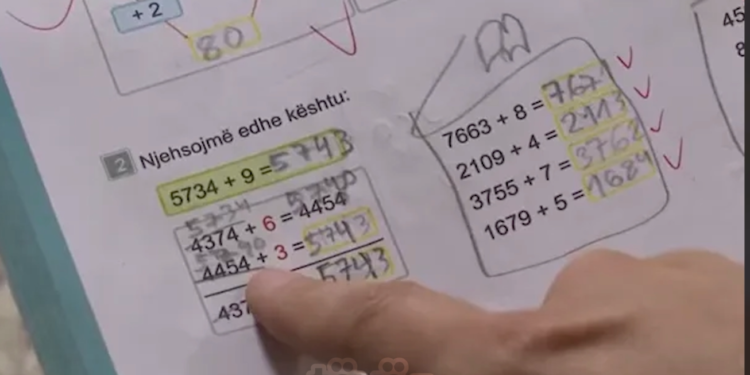 + 2
80
45
8
2 Njehsojmë edhe kështu:
5734 + 9 = 5743
5734 5740
4374 + 6 = 4454
5740
4454 + 3 = 5743
437 5743
7663 + 8 = 7671
2109 + 4 = 2113
3755 + 7 = 3762
1679 + 5 = 1684